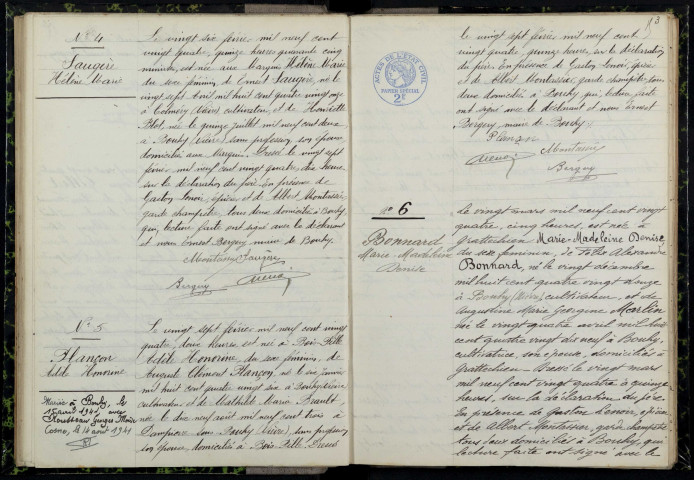 N° 4
Faugère
Hélène Marie
Le vingt six février mil neuf cent
vingt quatre, quinze heures quarante cinq
minutes, est née aux Margues Hélène Marie
du sexe féminin, de Ernest Faugère, né le
vingt sept août mil huit cent quatre vingt onze
à cultivateur, et de Henriette
Blot, née le quinze juillet mil neuf cent deux
à Bouhy (Nièvre) sans profession, son épouse
domiciliés aux Margues. Dressé le vingt sept
février mil neuf cent vingt quatre, dix heures
sur la déclaration du père. En présence de
Gaston Lenoir, épicier, et de Albert Montassié,
garde champêtre, tous deux domiciliés à Bouhy
qui, lecture faite ont signé avec le déclarant
et nous Ernest Berguy maire de Bouhy.
Montassié Faugère
Berguy Lenoir
N° 5
Plançon
Adèle Honorine
Mariée à Bouhy, le
1941 avec
Rousseau Georges
Cosne, le 14 août 1941
Le vingt sept février mil neuf cent vingt
quatre, douze heures est née à Bois Fillé
Adèle Honorine du sexe féminin, de
Auguste Clément Plançon, né le
mil huit cent quatre vingt à Bouhy (Nièvre)
cultivateur et de Mathilde Maria Brault
née le dix neuf août mil neuf cent trois à
Dampierre sous Bouhy (Nièvre) sans profession,
son épouse, domiciliés à Bois Fillé. Dressé
3
ACTES DE L'ÉTAT CIVIL
PAPIER SPÉCIAL
2F
le vingt sept février mil neuf cent
vingt quatre, quinze heures, sur la déclaration
du père. En présence de Gaston Lenoir, épicier
et de Albert Montassié, garde champêtre, tous
deux domiciliés à Bouhy, qui, lecture faite
ont signé avec le déclarant et nous Ernest
Berguy, maire de Bouhy.
Plançon
Lenoir Montassié
Berguy
N° 6
Bonnard
Marie Madeleine
Denise
Le vingt mars mil neuf cent vingt
quatre, cinq heures, est née à
Grattechien Marie-Madeleine Denise,
du sexe féminin, de Félix Alexandre
Bonnard, né le vingt décembre
mil huit cent quatre vingt douze
à Bouhy (Nièvre), cultivateur, et de
Augustine Marie Georgine Marlin
née le vingt quatre avril mil huit
cent quatre vingt dix neuf à Bouhy,
cultivatrice, son épouse, domiciliés à
Grattechien. Dressé le vingt mars
mil neuf cent vingt quatre à quinze
heures, sur la déclaration du père.
En présence de Gaston Lenoir, épicier
et de Albert Montassier, garde champêtre
tous deux domiciliés à Bouhy, qui
lecture faite ont signé avec le